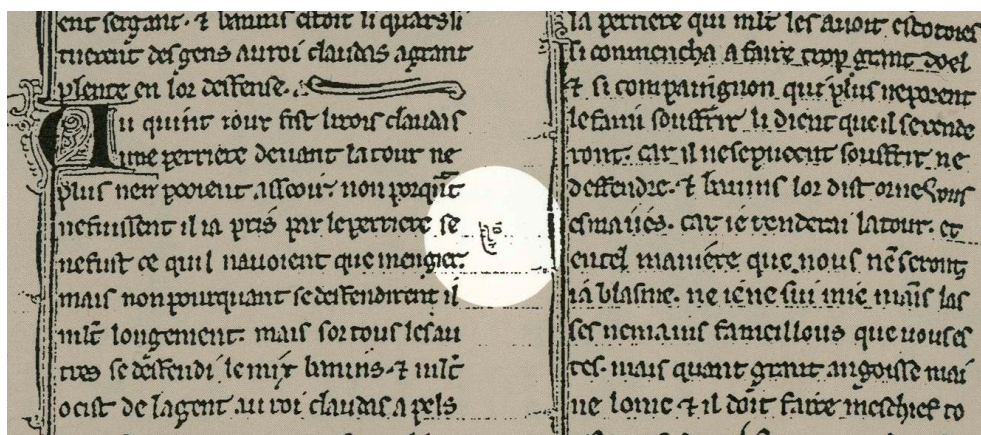 ent sergant. ⁊ banins estoit li quars si
tuerent des gens au roi claudas a grant
plente en lor deffense.
Au quint iour fist li rois claudas
une perriere deuant la tour ne
plus nen pooient asseoir. non porqūt
ne fuissent il ia pris par le perriere se
ne fust ce quil nauoient que mengier
mais non pourquant se deffendirent il
ml̄t longement. mais sor tous les au
tres se deffendi le mix banins. ⁊ ml̄t
ocist de la gent au roi claudas a pels
la perriere qui ml̄t les auoit
si commencha a faire trop grant doel
⁊ si compaignon qui plus ne porent
le faim souffrir li dient que il se rende
ront. car il ne se pueent souffrir ne
deffendre. ⁊ banins lor dist or ne vous
esmaiies. car ie renderai la tour. et
en tel maniere que nous nē serons
ia blasme. ne ie ne sui mie mains las
ses ne mains fameillous que vous es
tes. mais quant grant angoisse mai
ne lome ⁊ il doit faire meschief to